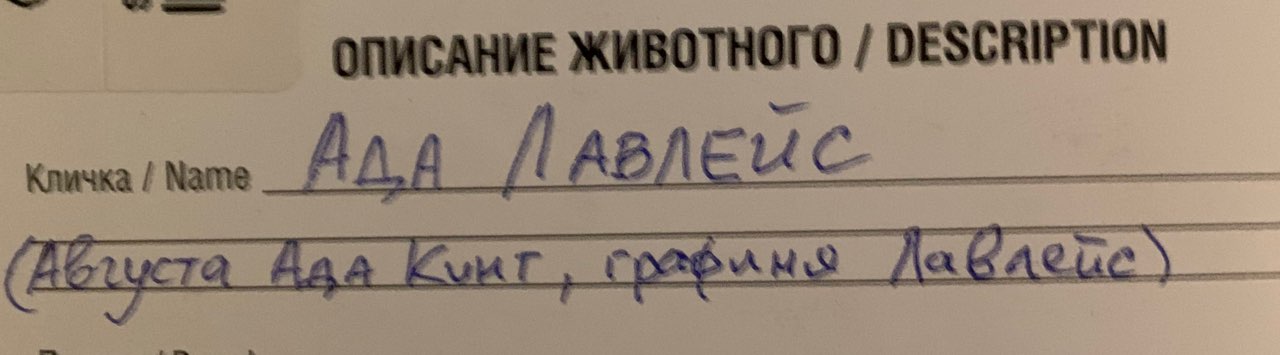 ОПИСАНИЕ ЖИВОТНОГО / DESCRIPTION
Кличка / Name АДА ЛАВЛЕЙС
(Августа Ада Кинг, графиня Лавлейс)